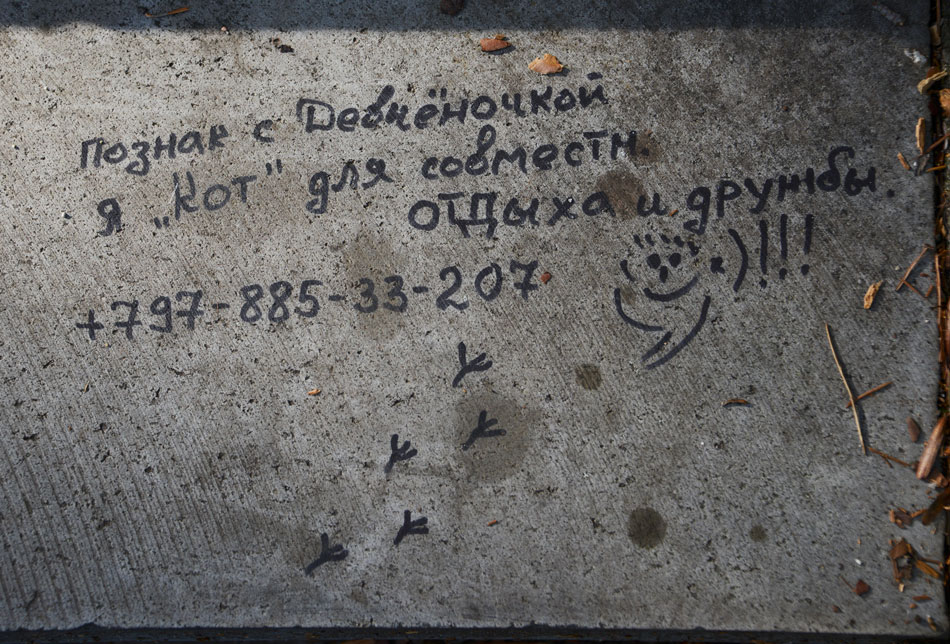 Познак с Девчёночкой
я „Кот" для совместн.
отдыха и дружбы.
+797-885-33-207 :)!!!